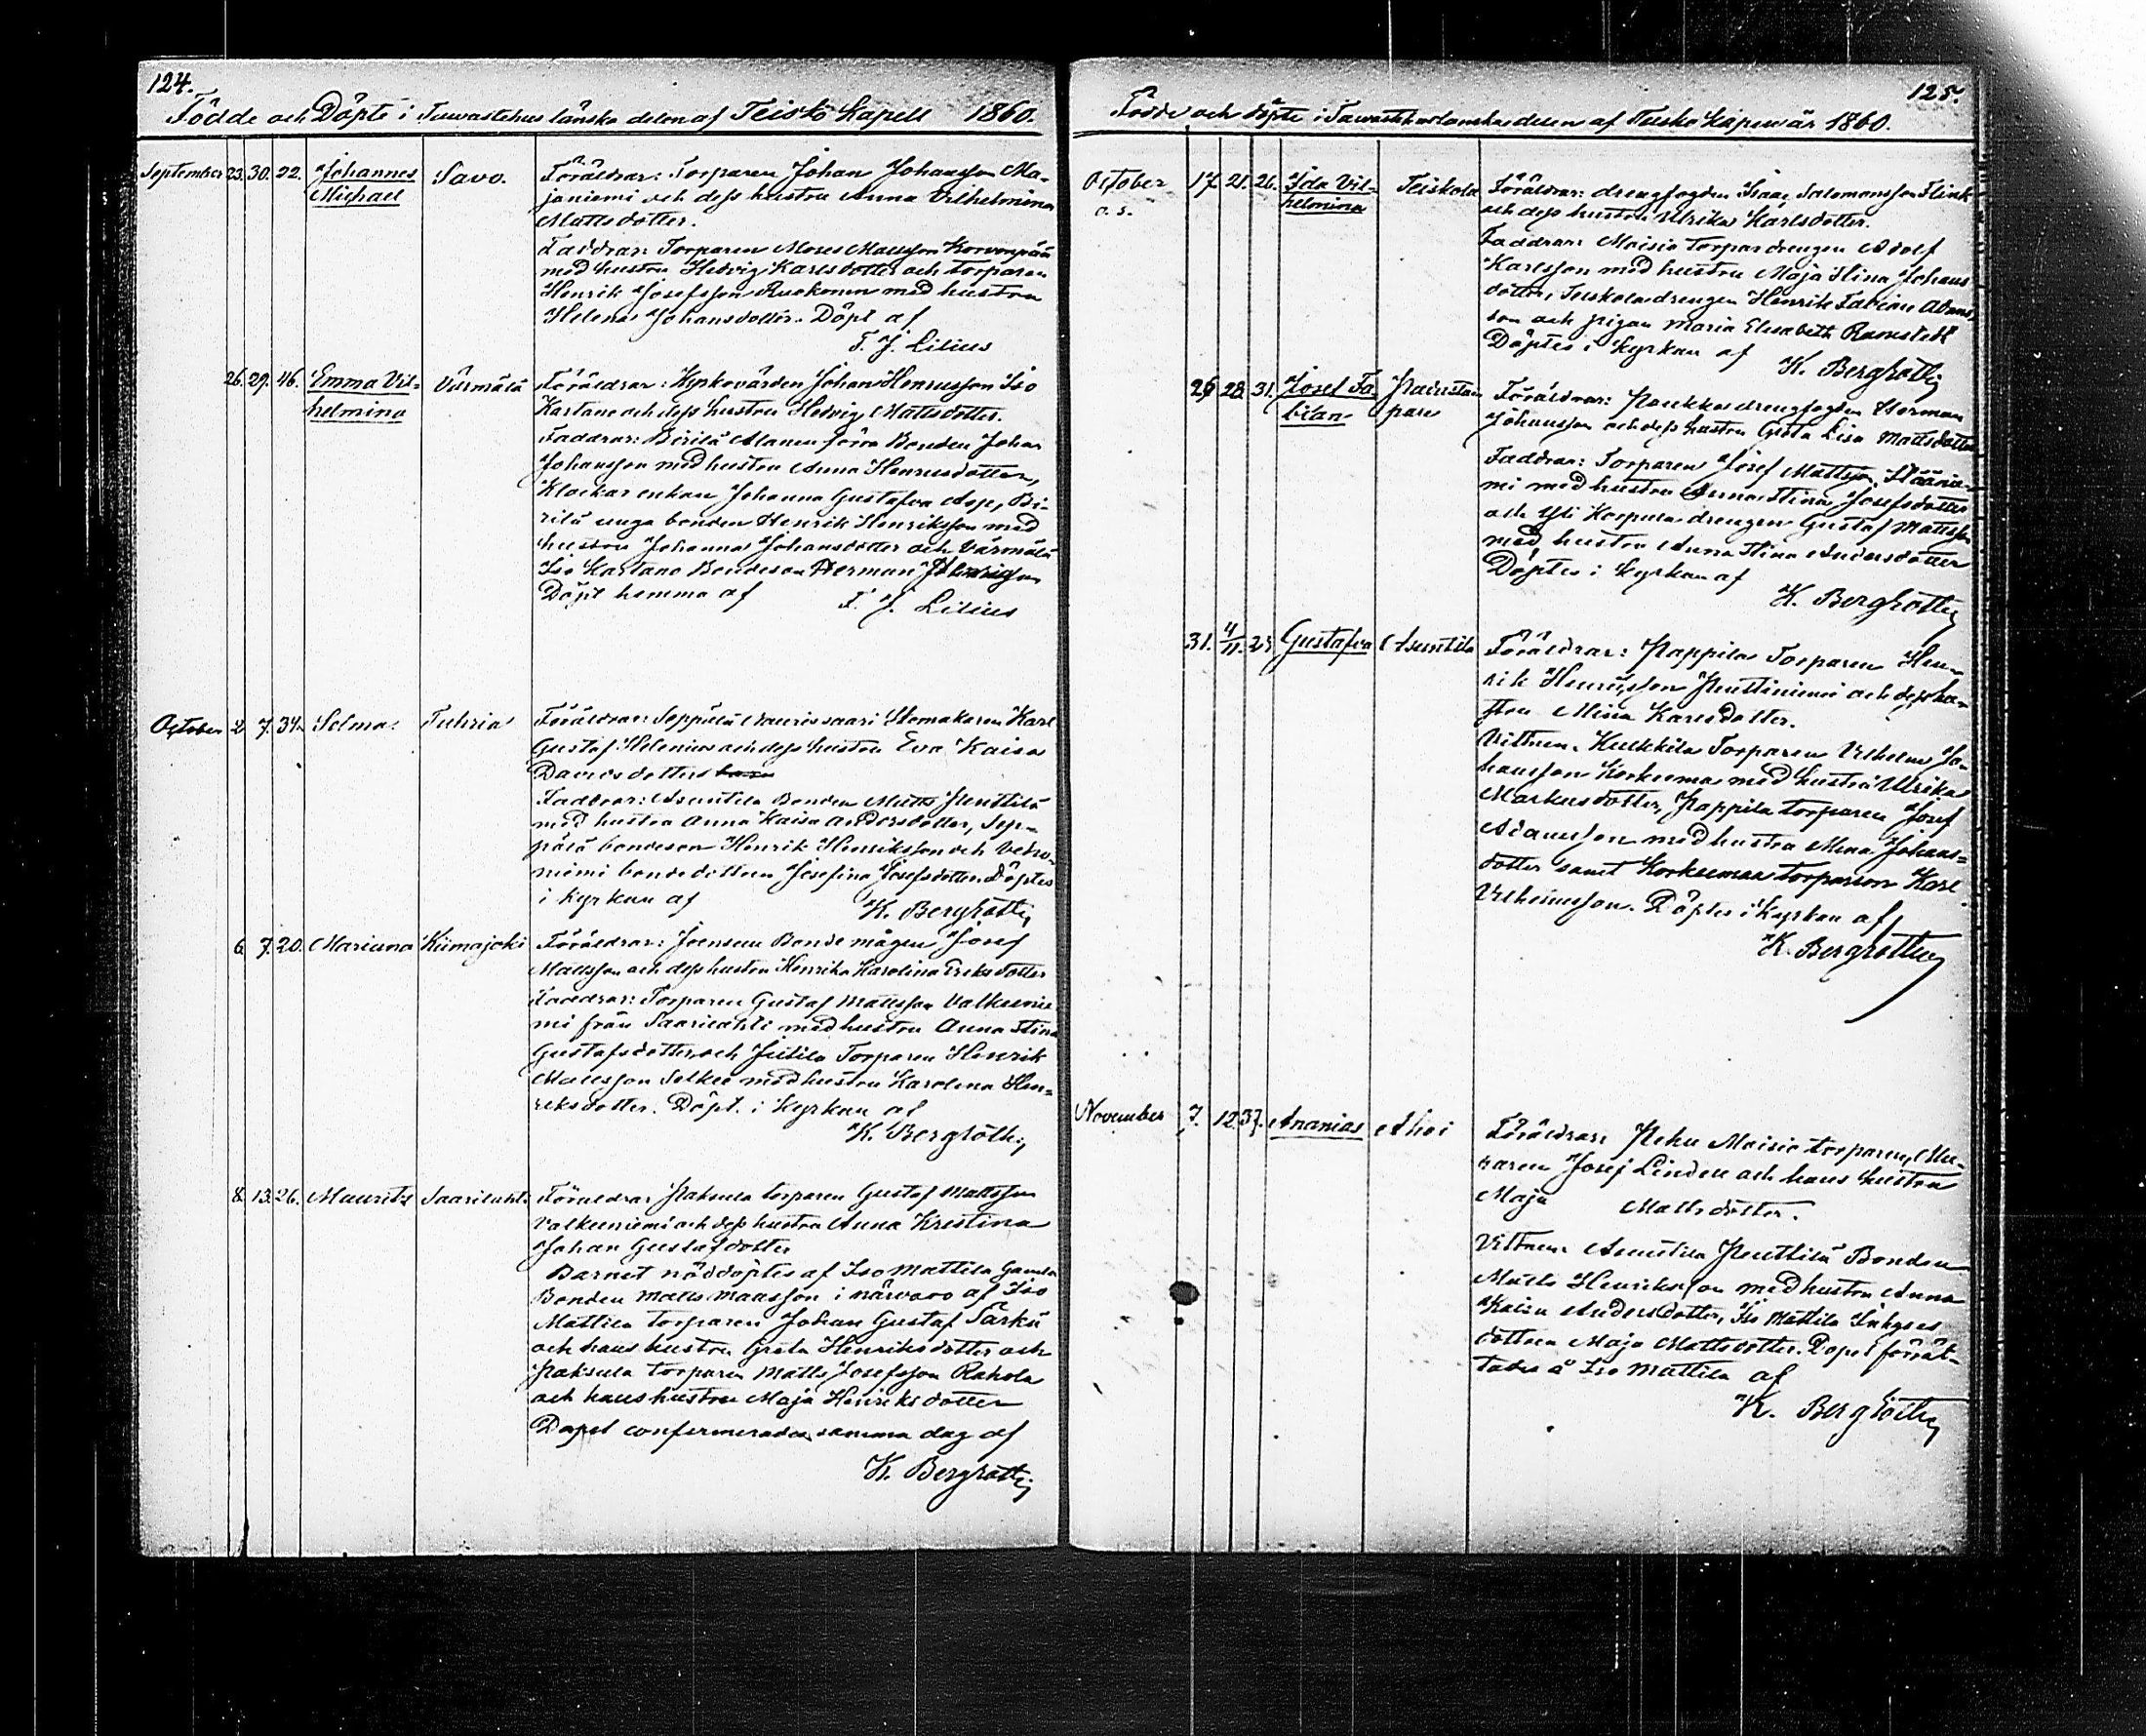 124.
Födde och Döpte i Tawastehus länska delen af Teisko Kapell 1860.
September 23. 30. 22. Johannes Michael Savo.
Föräldrar: Torparen Johan Johansson Ma-
janiemi och dess hustru Anna Vilhelmina
Mattsdotter.
Faddrar: Torparen Moses Mattsson Korvenpää
med hustru Hedvig Karlsdotter och torparen
Henrik Josefsson Ruokonen med hustru
Helena Johansdotter. Döpt af
F. J. Lilius
26. 29. 46. Emma Vil-
helmina Värmälä
Föräldrar: Kyrkovärden Johan Henriksson Iso
Kartano och dess hustru Hedvig Mattsdotter.
Faddrar: Alanen förra Bonden Johan
Johansson med hustru Anna Henriksdotter,
Klockar enkan Johanna Gustafva Asp, Bi-
rilä unga bonden Henrik Henriksson med
hustru Johanna Johansdotter och Värmälä
Iso Kartano Bondeson Herman
Döpt hemma af F. J. Lilius
October 2. 7. 34. Selma Tuhria
Föräldrar: Seppälä Naurissaari Skomakaren Karl
Gustaf Helenius och dess hustru Eva Kaisa
Davidsdotter
Faddrar: Asuntila Bonden Matts Penttilä
med hustru Anna Kaisa Andersdotter, Sep-
pälä bondeson Henrik Henriksson och
niemi bondedottren Josefina Josefsdotter. Döptes
i kyrkan af K. Bergroth
6. 7. 20. Mariana Kiimajoki
Föräldrar: Joensuu Bonde mågen Josef
Mattsson och dess hustru Henrika Karolina Eriksdotter
Faddrar: Torparen Gustaf Mattsson Valkeenie-
mi från Saarilahti med hustru Anna Stina
Gustafsdotter och Jutila Torparen Henrik
Mattsson Selkee med hustru Karolina Hen-
riksdotter. Döpt i Kyrkan af
K. Bergroth
8. 13. 26. Maurits Saarilahti
Föräldrar Paksula torparen Gustaf Mattsson
Valkeeniemi och dess hustru Anna Kristina
Johan Gustafsdotter
Barnet nöddöptes af Iso Mattila gamla
Bonden Matts Mattsson i närvaro af Iso
Mattila torparen Johan Gustaf Särki
och hans hustru Greta Henriksdotter och
Paksula torparen Matts Josefsson Rahola
och hans hustru Maja Henriksdotter
Dopet confirmerades samma dag af
K. Bergroth
125.
Födde och döpte i Tawastehus länska delen af Teisko Kapell år 1860.
October 17. 21. 26. Ida Vil- Teiskola
a. s. helmina
Föräldrar: drengfogden Isaac Salomonsson Flink
och dess hustru Ulrika Karlsdotter.
Faddrar: Moisio torpardrengen Adolf
Karlsson med hustru Maja Stina Johans
dotter, Teiskola drengen Henrik Fabian Adams
son och pigan Maria Elisabeth Ramstedt
Döptes i Kyrkan af K. Bergroth
26 28. 31. Josef Fa-
bian
Föräldrar: Paukka drengfogden Herman
Johansson och dess hustru Greta Lisa Mattsdotter
Faddrar: Torparen Josef Mattsson
mi med hustru Anna Stina Josefsdotter
och Yli Korpula drengen Gustaf Mattsson
med hustru Anna Stina Andersdotter
Döptes i kyrkan af
K. Bergroth
31. 4/11. 23 Gustafva Asuntila
Föräldrar: Pappila Torparen Hen-
rik Henriksson Penttiniemi och dess hu-
stru Mina Karlsdotter.
Vittnen: Kulkkila Torparen Vilhelm Jo-
hansson Korkeemaa med hustru Ulrika
Markusdotter, Pappila torparen Josef
Adamsson med hustru Mina Johans-
dotter samt Korkeemaa torparson Karl
Vilhelmsson. Döptes i Kyrkan af
K. Bergroth
November 7. 12. 37. Ananias Ahoi
Föräldrar: Pehu Moisio torparen, Mu-
raren Josef Linden och hans hustru
Maja Mattsdotter.
Vittnen: Asuntila Penttilä Bonden
Matts Henriksson med hustru Anna
Kaisa Andersdotter, Iso Mattila Inhyses
dottren Maja Mattsdotter. Dopet förrät-
tades å Iso Mattila af
K. Bergroth